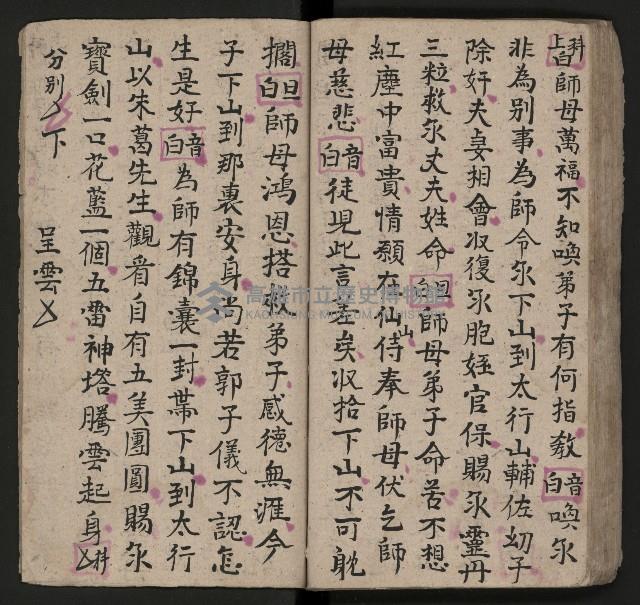 上白科師母萬福不知喚弟子有何指教白音喚尔
非為别事為師令尔下山到太行山輔佐幼子
除奸夫妾相會收復尔胞姪官保賜尔靈丹
三粒救尔丈夫姓命白旦師母弟子命苦不想
紅塵中富貴情願在仙山侍奉師母伏乞師
母慈悲白音徒児此言差矣収拾下山不可躭
擱白旦師母鴻恩搭救弟子感德無涯今
子下山到那裏安身尚若郭子儀不認怎
生是好白音為師有錦囊一封帶下山到太行
山以朱葛先生觀看自有五美團圓賜尔
寶劍一口花藍一個五雷神塔騰雲起身科
分别下
呈雲
高雄市立歷史博物館
KAOHSIUNG MUSEUM OF HISTORY